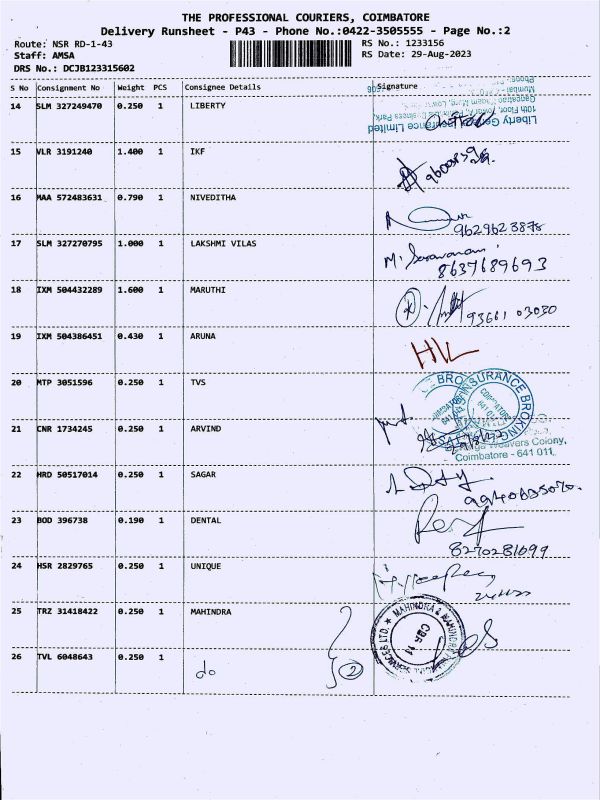 THE PROFESSIONAL COURIERS, COIMBATORE
Delivery Runsheet - P43 - Phone No.:0422-3505555 - Page No.:2
Route: NSR RD-1-43 RS No.: 1233156
Staff: AMSA RS Date: 29-Aug-2023
DRS No.: DCJB123315602
S No Consignment No Weight PCS Consignee Details Signature
14 SLM 327249470 0.250 1 LIBERTY
Liberty General Insurance Limited
10th Floor,
15 VLR 3191240 1.400 1 IKF
16 MAA 572483631 0.790 1 NIVEDITHA
9629623878
17 SLM 327270795 1.000 1 LAKSHMI VILAS M. Saravanan
8637689693
18 IXM 504432289 1.600 1 MARUTHI 93661 03030
19 IXM 504386451 0.430 1 ARUNA
20 MTP 3051596 0.250 1 TVS
INSURANCE BROKING
21 CNR 1734245 0.250 1 ARVIND
Weavers Colony,
Coimbatore - 641 011.
22 HRD 50517014 0.250 1 SAGAR
23 BOD 396738 0.190 1 DENTAL
8270281099
24 HSR 2829765 0.250 1 UNIQUE
25 TRZ 31418422 0.250 1 MAHINDRA
MAHINDRA & MAHINDRA
CBE 11
26 TVL 6048643 0.250 1 do 2